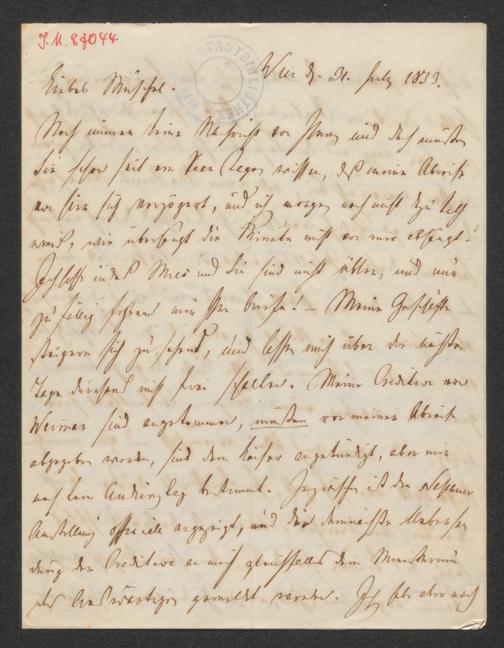 J.N. 84044
STADTBIBLIOTHEK WIEN
Wien d. 31. July 1833.
Liebes
Noch immer keine Nachricht von Ihnen und doch müssen
Sie schon seit ein Paar Tagen wissen, daß meine Abreise
von hier sich verzögert, und ich morgen noch nicht
weiß, wie überhaupt die Minute nicht von mir abhängt!
und Sie sind nicht übler, und nur
zufällig fehlen mir Ihre Briefe! – Meine Geschäfte
steigern sich zusehend, und lassen mich über die nächsten
Tage durchaus nicht frei schalten. Meine Creditive von
Weimar sind angekommen, müssen vor meiner Abreise
abgegeben werden, sind dem Kaiser angekündigt, aber mir
noch kein Audienztag bestimmt. Inzwischen ist den Nassauer
Anstellung officiell angezeigt, und die demnächste Übersen
dung der Creditive an mich gleichfalls dem Ministerium
des Auswärtigen gemeldet worden. Ich habe aber noch